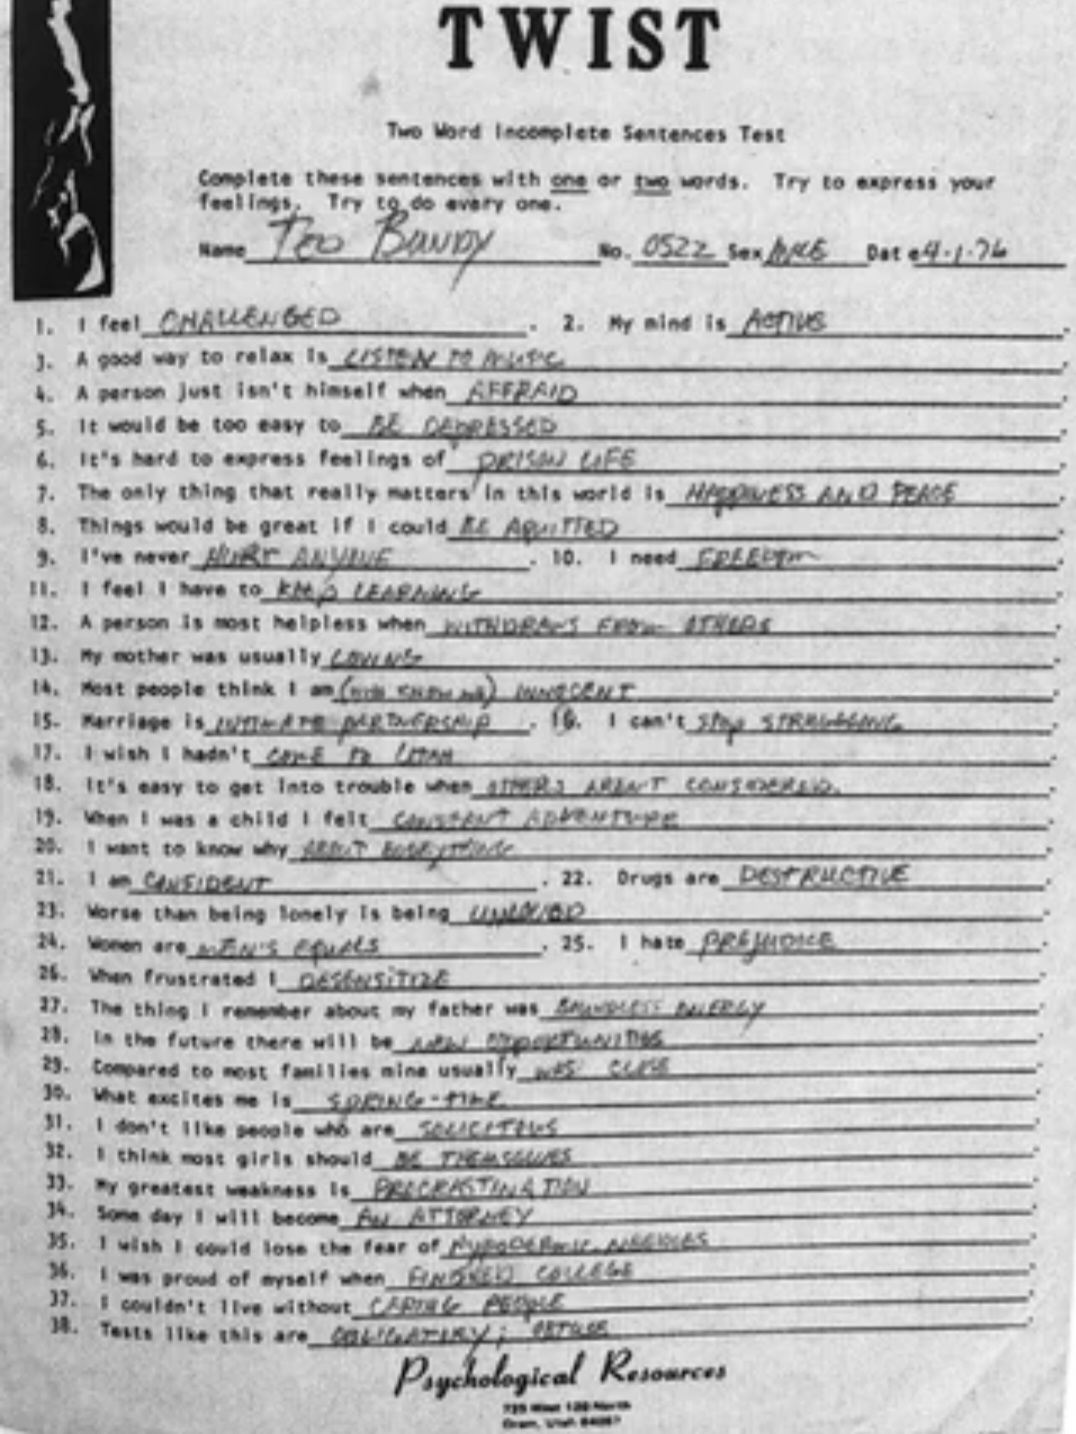 TWIST
Two Word Incomplete Sentences Test
Complete these sentences with one or two words. Try to express your
feelings. Try to do every one.
Name TED BUNDY No. 0522 Sex MALE Date 4-1-76
1. I feel CHALLENGED . 2. My mind is ACTIVE .
3. A good way to relax is LISTEN TO MUSIC .
4. A person just isn't himself when AFFRAID .
5. It would be too easy to BE DEPRESSED .
6. It's hard to express feelings of PRISON LIFE .
7. The only thing that really matters in this world is HAPPINESS AND PEACE .
8. Things would be great if I could BE AQUITTED .
9. I've never HURT ANYONE . 10. I need FREEDOM .
11. I feel I have to KEEP LEARNING .
12. A person is most helpless when WITHDRAWS FROM OTHERS .
13. My mother was usually LOVING .
14. Most people think I am (WHO KNOW ME) INNOCENT .
15. Marriage is INTIMATE PARTNERSHIP . 16. I can't STOP STRUGGLING .
17. I wish I hadn't COME TO UTAH .
18. It's easy to get into trouble when OTHERS AREN'T CONSIDERED.
19. When I was a child I felt CONSTANT ADVENTURE .
20. I want to know why ABOUT EVERYTHING .
21. I am CONFIDENT . 22. Drugs are DESTRUCTIVE .
23. Worse than being lonely is being UNLOVED .
24. Women are MEN'S EQUALS . 25. I hate PREJUDICE .
26. When frustrated I DESENSITIZE .
27. The thing I remember about my father was BOUNDLESS ENERGY .
28. In the future there will be NEW OPPORTUNITIES .
29. Compared to most families mine usually WAS CLOSE .
30. What excites me is SPRING-TIME .
31. I don't like people who are SOLICITOUS .
32. I think most girls should BE THEMSELVES .
33. My greatest weakness is PROCRASTINATION .
34. Some day I will become AN ATTORNEY .
35. I wish I could lose the fear of HYPODERMIC NEEDLES .
36. I was proud of myself when FINISHED COLLEGE .
37. I couldn't live without CARING PEOPLE .
38. Tests like this are OBLIGATORY; OBTUSE .
Psychological Resources
Orem, Utah